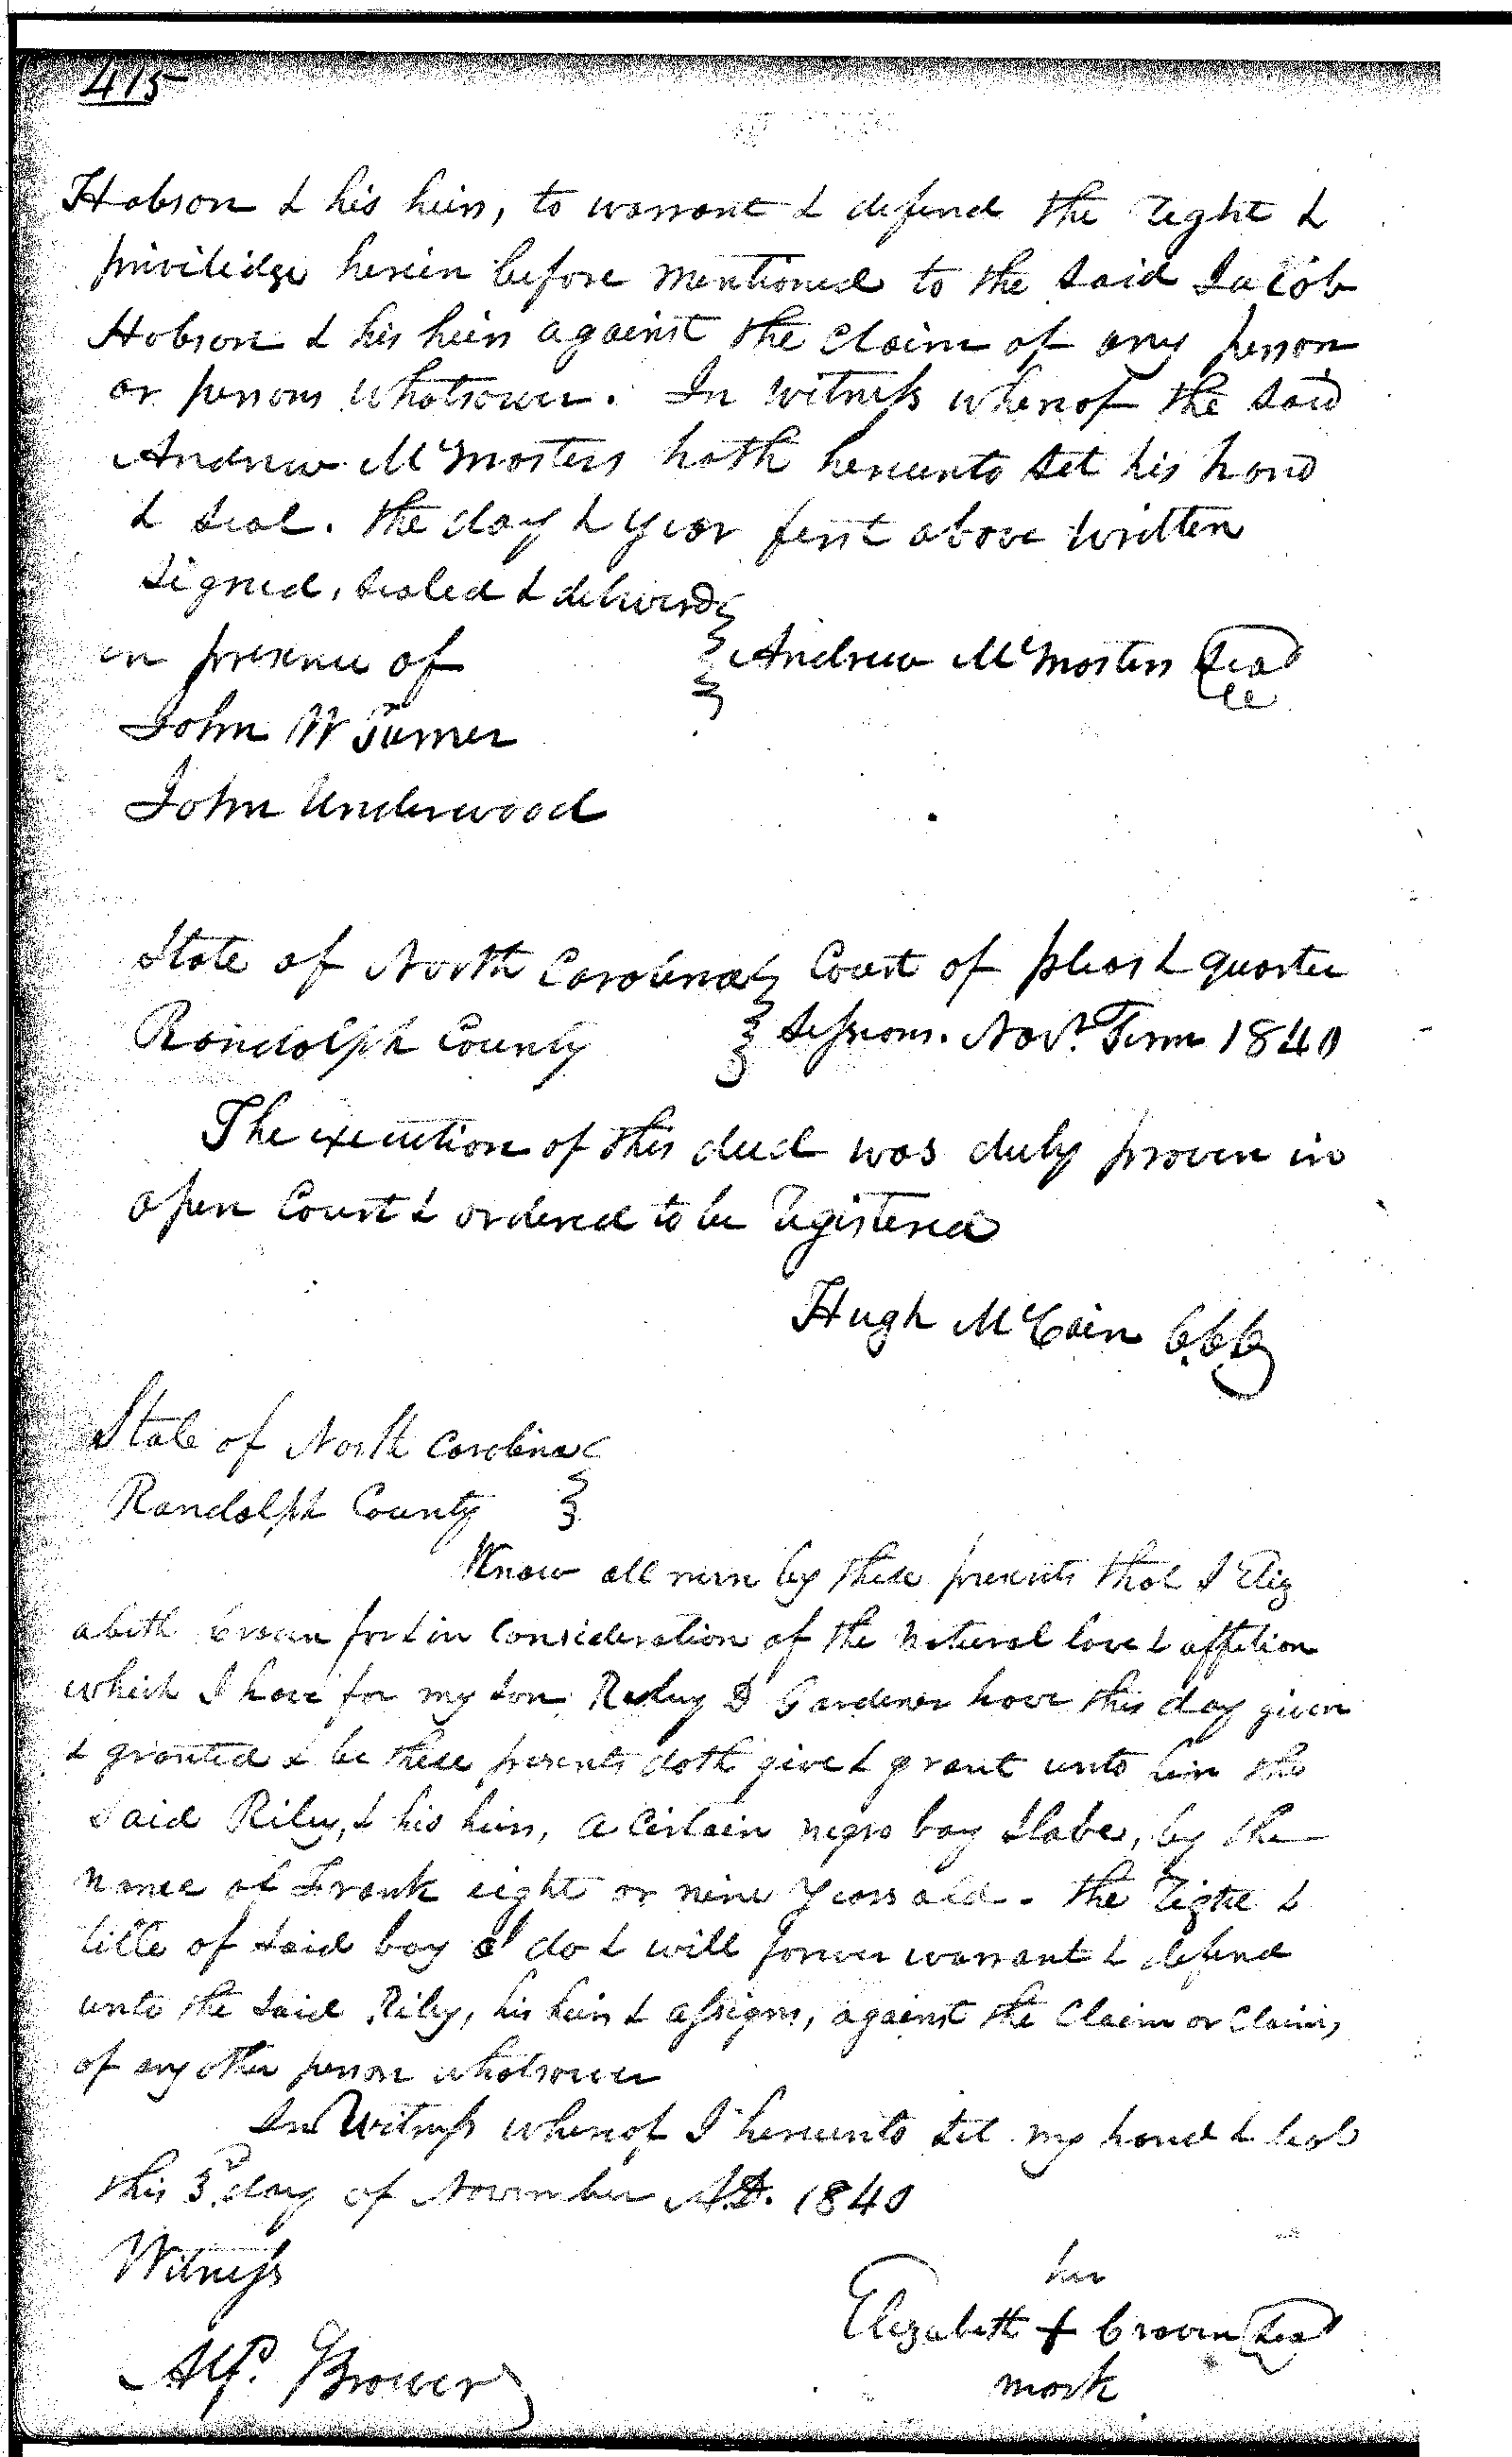 415
Hobson & his heirs, to warrant & defend the right &
priviledge herein before mentioned to the said Jacob
Hobson & his heirs against the claim of any person
or persons whatsoever. In witness whereof the said
Andrew McMasters hath hereunto set his hand
& seal. the day & year first above written
Signed, sealed & deliverd
in presence of
Andrew McMasters Seal
John W Turner
John Underwood
State of North Carolina Court of pleas & quarter
Randolph County Sessions. Novr. Term 1840
The execution of this deed was duly proven in
open Court & ordered to be registered
Hugh McCain C.C.C
State of North Carolina
Randolph County
Know all men by these presents that I Eliz
abeth Craven for & in Consideration of the natural love & affetion
which I have for my son D Gardener have this day given
& granted & be these presents doth give & grant unto him the
said Riley, & his heirs, a certain negro boy Slabe, by the
name of Frank eight or nine years old. the right &
title of said boy I do & will forever warrant & defend
unto the said Riley, his heirs & assigns, against the Claim or Claims
of any other person whatsoever
In Witness whereof I hereunto set my hand & seal
this 3d day of November A.D. 1840
Witness
her
Elizabeth + Craven Seal
mark
Alf. Brower